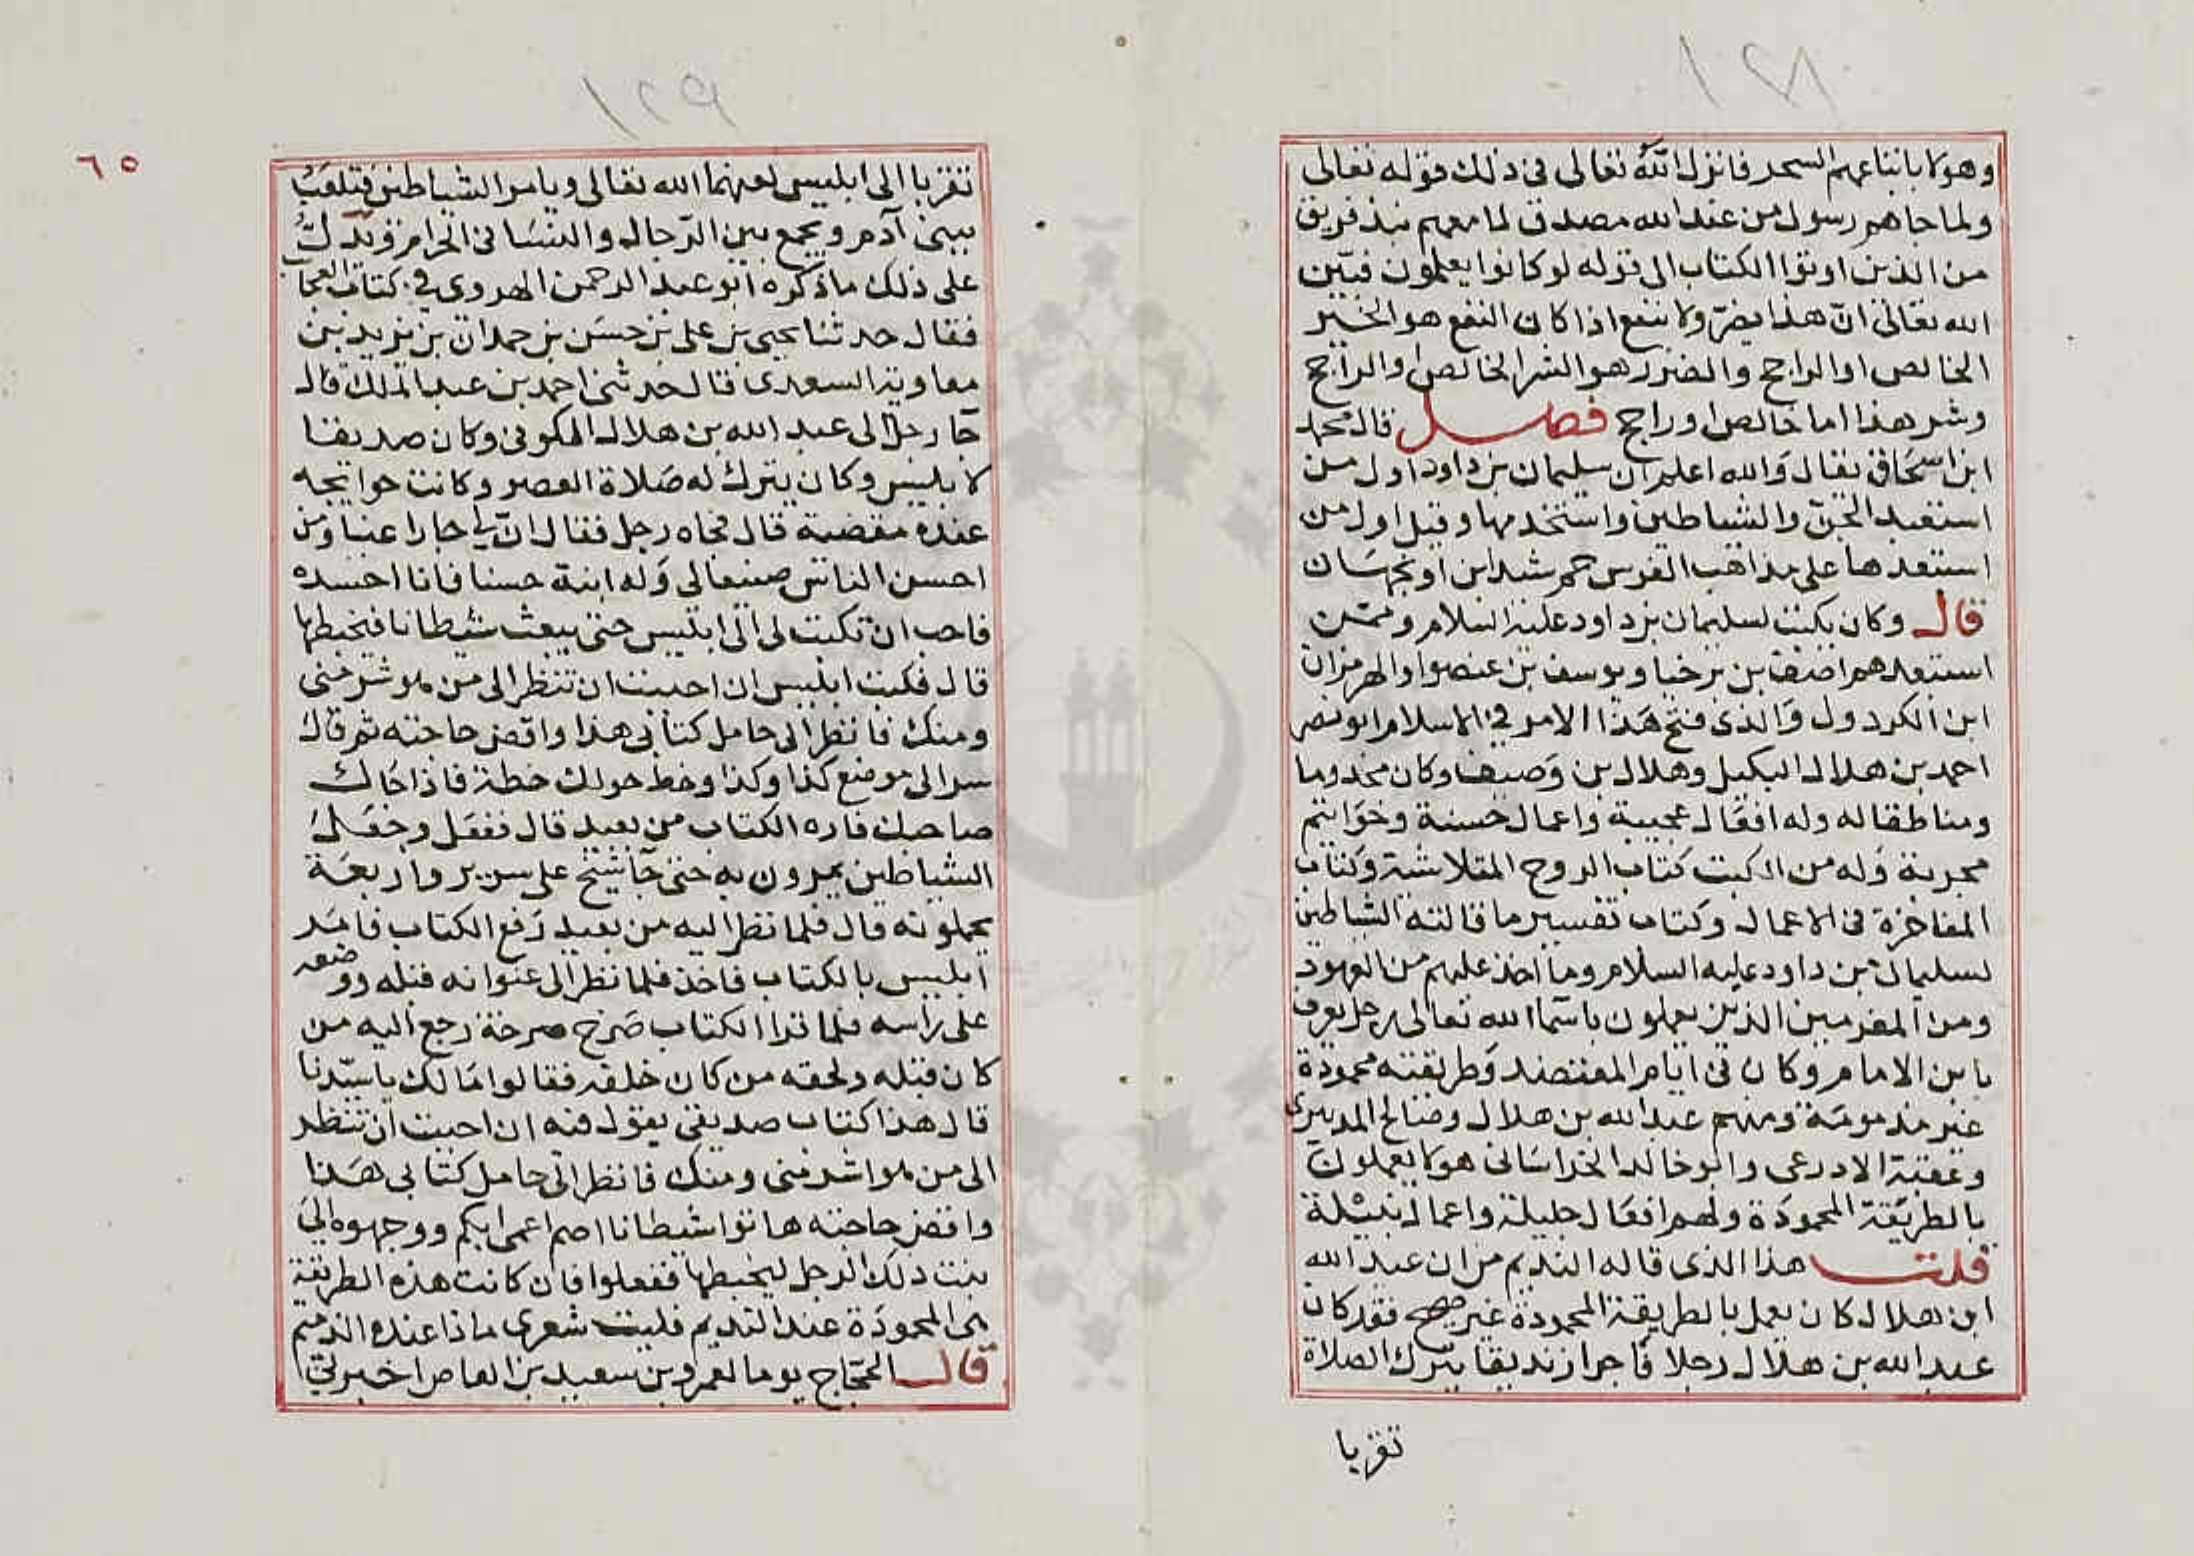 ١٢٨
وهولا باتباعهم السحر فانزل الله تعالى في ذلك قوله تعالى
ولما جاهم رسول من عند الله مصدق لما معهم نبذ فريق
من الذين اوتوا الكتاب الى قوله لو كانوا يعلمون فبيّن
الله تعالى انّ هذا يضرّ ولا ينفع اذا كان النفع هو الخير
الخالص او الراجح والضرر هو الشر الخالص او الراجح
وشر هذا اما خالص او راجح فصل قال محمد
ابن اسحاق يقال والله اعلم ان سليمان بن داود اول من
استعبد الجنّ والشياطين واستخدمها وقيل اول من
استعبدها على مذاهب الفرس جم شد ابن اونجهان
قال وكان يكتب لسليمان بن داود عليه السلام وممّن
استعبدهم اصف بن برخيا ويوسف بن عنصوا والهرمزان
ابن الكردول والذي فتح هذا الامر في الاسلام ابو نصر
احمد بن هلال البكيل وهلال بن وصيف وكان مخدوما
ومناطقا له وله افعال عجيبة واعمال حسنة وخواتم
مجربة وله من الكتب كتاب الروح المتلاشية وكتاب
المفاخرة في الاعمال وكتاب تفسير ما قالته الشياطين
لسليمان بن داود عليه السلام وما اخذ عليهم من العهود
ومن المعزمين الذين يعملون باسما الله تعالى رجل يعرف
بابن الامام وكان في ايام المعتضد وطريقته محمودة
غير مذمومة ومنهم عبد الله بن هلال وصالح المديبري
وعقبة الادرعي وابو خالد الخراساني هولا يعملون
بالطريقة المحمودة ولهم افعال جليلة واعمال نبيلة
قلت هذا الذي قاله النديم من ان عبد الله
ابن هلال كان يعمل بالطريقة المحمودة غير صحيح فقد كان
عبد الله بن هلال رجلا فاجرا زنديقا يترك الصلاة
تقربا
١٢٩
٦٥
تقربا الى ابليس لعنهما الله تعالى ويامر الشياطين فتلعب
ببني آدم ويجمع بين الرجال والنسا في الحرام ويدلك
على ذلك ما ذكره ابو عبد الرحمن الهروي في كتاب العجا
فقال حدثنا يحيى بن على بن حسن بن حمدان بن يزيد بن
معاوية السعدي قال حدثني احمد بن عبد الملك قال
جآ رجل الى عبد الله بن هلال الكوفي وكان صديقا
لابليس وكان يترك له صلاة العصر وكانت حوايجه
عنده مقضية قال فجاه رجل فقال انّ لي جارا غنيا ومن
احسن الناس صنيعا لي وله ابنة حسنا فانا احسده
فاحب ان تكتب لي الى ابليس حتى يبعث شيطانا فيخبطها
قال فكتب ابليس ان احببت ان تنظر الى من هو شر مني
ومنك فانظر الى حامل كتابي هذا واقض حاجته ثم قال
سر الى موضع كذا وكذا وخط حولك خطة فاذا جاك
صاحبك فاره الكتاب من بعيد قال ففعل وجعل
الشياطين يمرون به حتى جآ شيخ على سرير واربعة
يحملونه قال فلما نظر اليه من بعيد رفع الكتاب فامر
ابليس بالكتاب فاخذ فلما نظر الى عنوانه قبله ووضعه
على راسه فلما قرا الكتاب صرخ صرخة رجع اليه من
كان قبله ولحقه من كان خلفه فقالوا مالك يا سيّدنا
قال هذا كتاب صديقي يقول فيه ان احببت ان تنظر
الى من هو اشر مني ومنك فانظر الى حامل كتابي هذا
واقض حاجته هاتوا شيطانا اصم اعمى ابكم ووجهوه الى
بنت ذلك الرجل ليخبطها ففعلوا فان كانت هذه الطريقة
هى المحمودة عند النديم فليت شعري ماذا عنده الذميم
قال الحجّاج يوما لعمرو بن سعيد بن العاص اخبرني